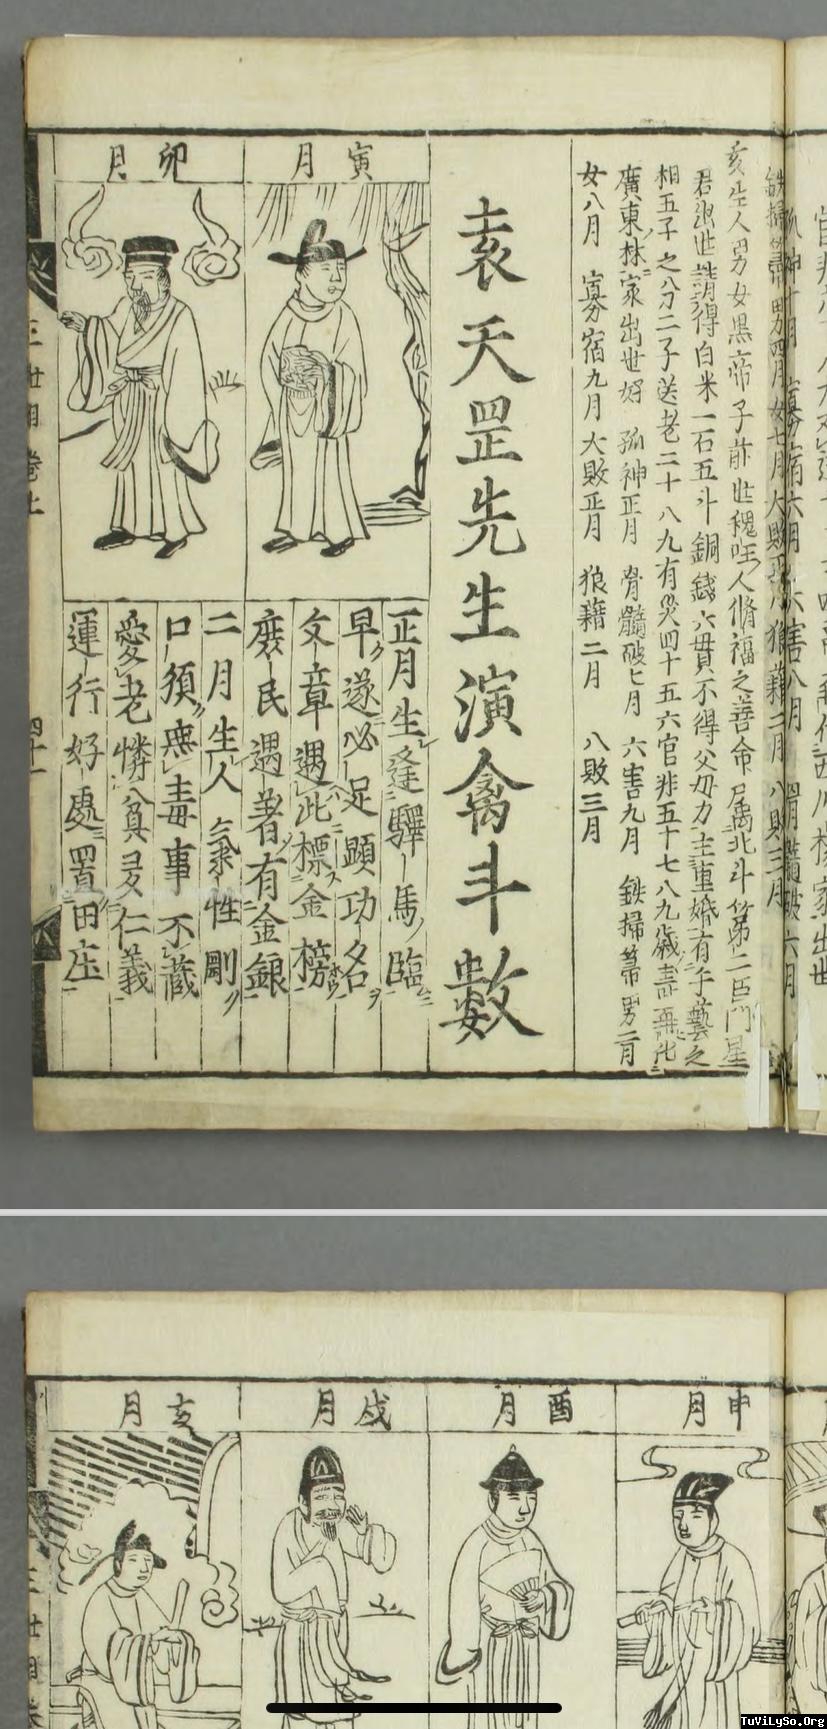 亥生人男女黒帝子前世穐吐人脩福之善命属北斗第二巨門星
君汲世請得白米一石五斗銅錢六貫不得父母力主重婚有子藝之
相五子之分二子送老二十八九有灾四十五六官非五十七八九歳壽再化
廣東林家出世好 孤神正月 骨髓破七月 六害九月 鉄掃箒男二月
女八月 寡宿九月 大敗正月 狼藉二月 八敗三月
袁天罡先生演禽斗數
寅月
正月生逢驛馬臨
早遂必足顕功名
文章遇此標金榜
庶民遇著有金銀
卯月
二月生人氣性剛
口須無毒事不藏
愛老憐貧多仁義
運行好處置田庄
三世相卷上
四十一
申月
酉月
戌月
亥月
三世相
TuViLySo.Org